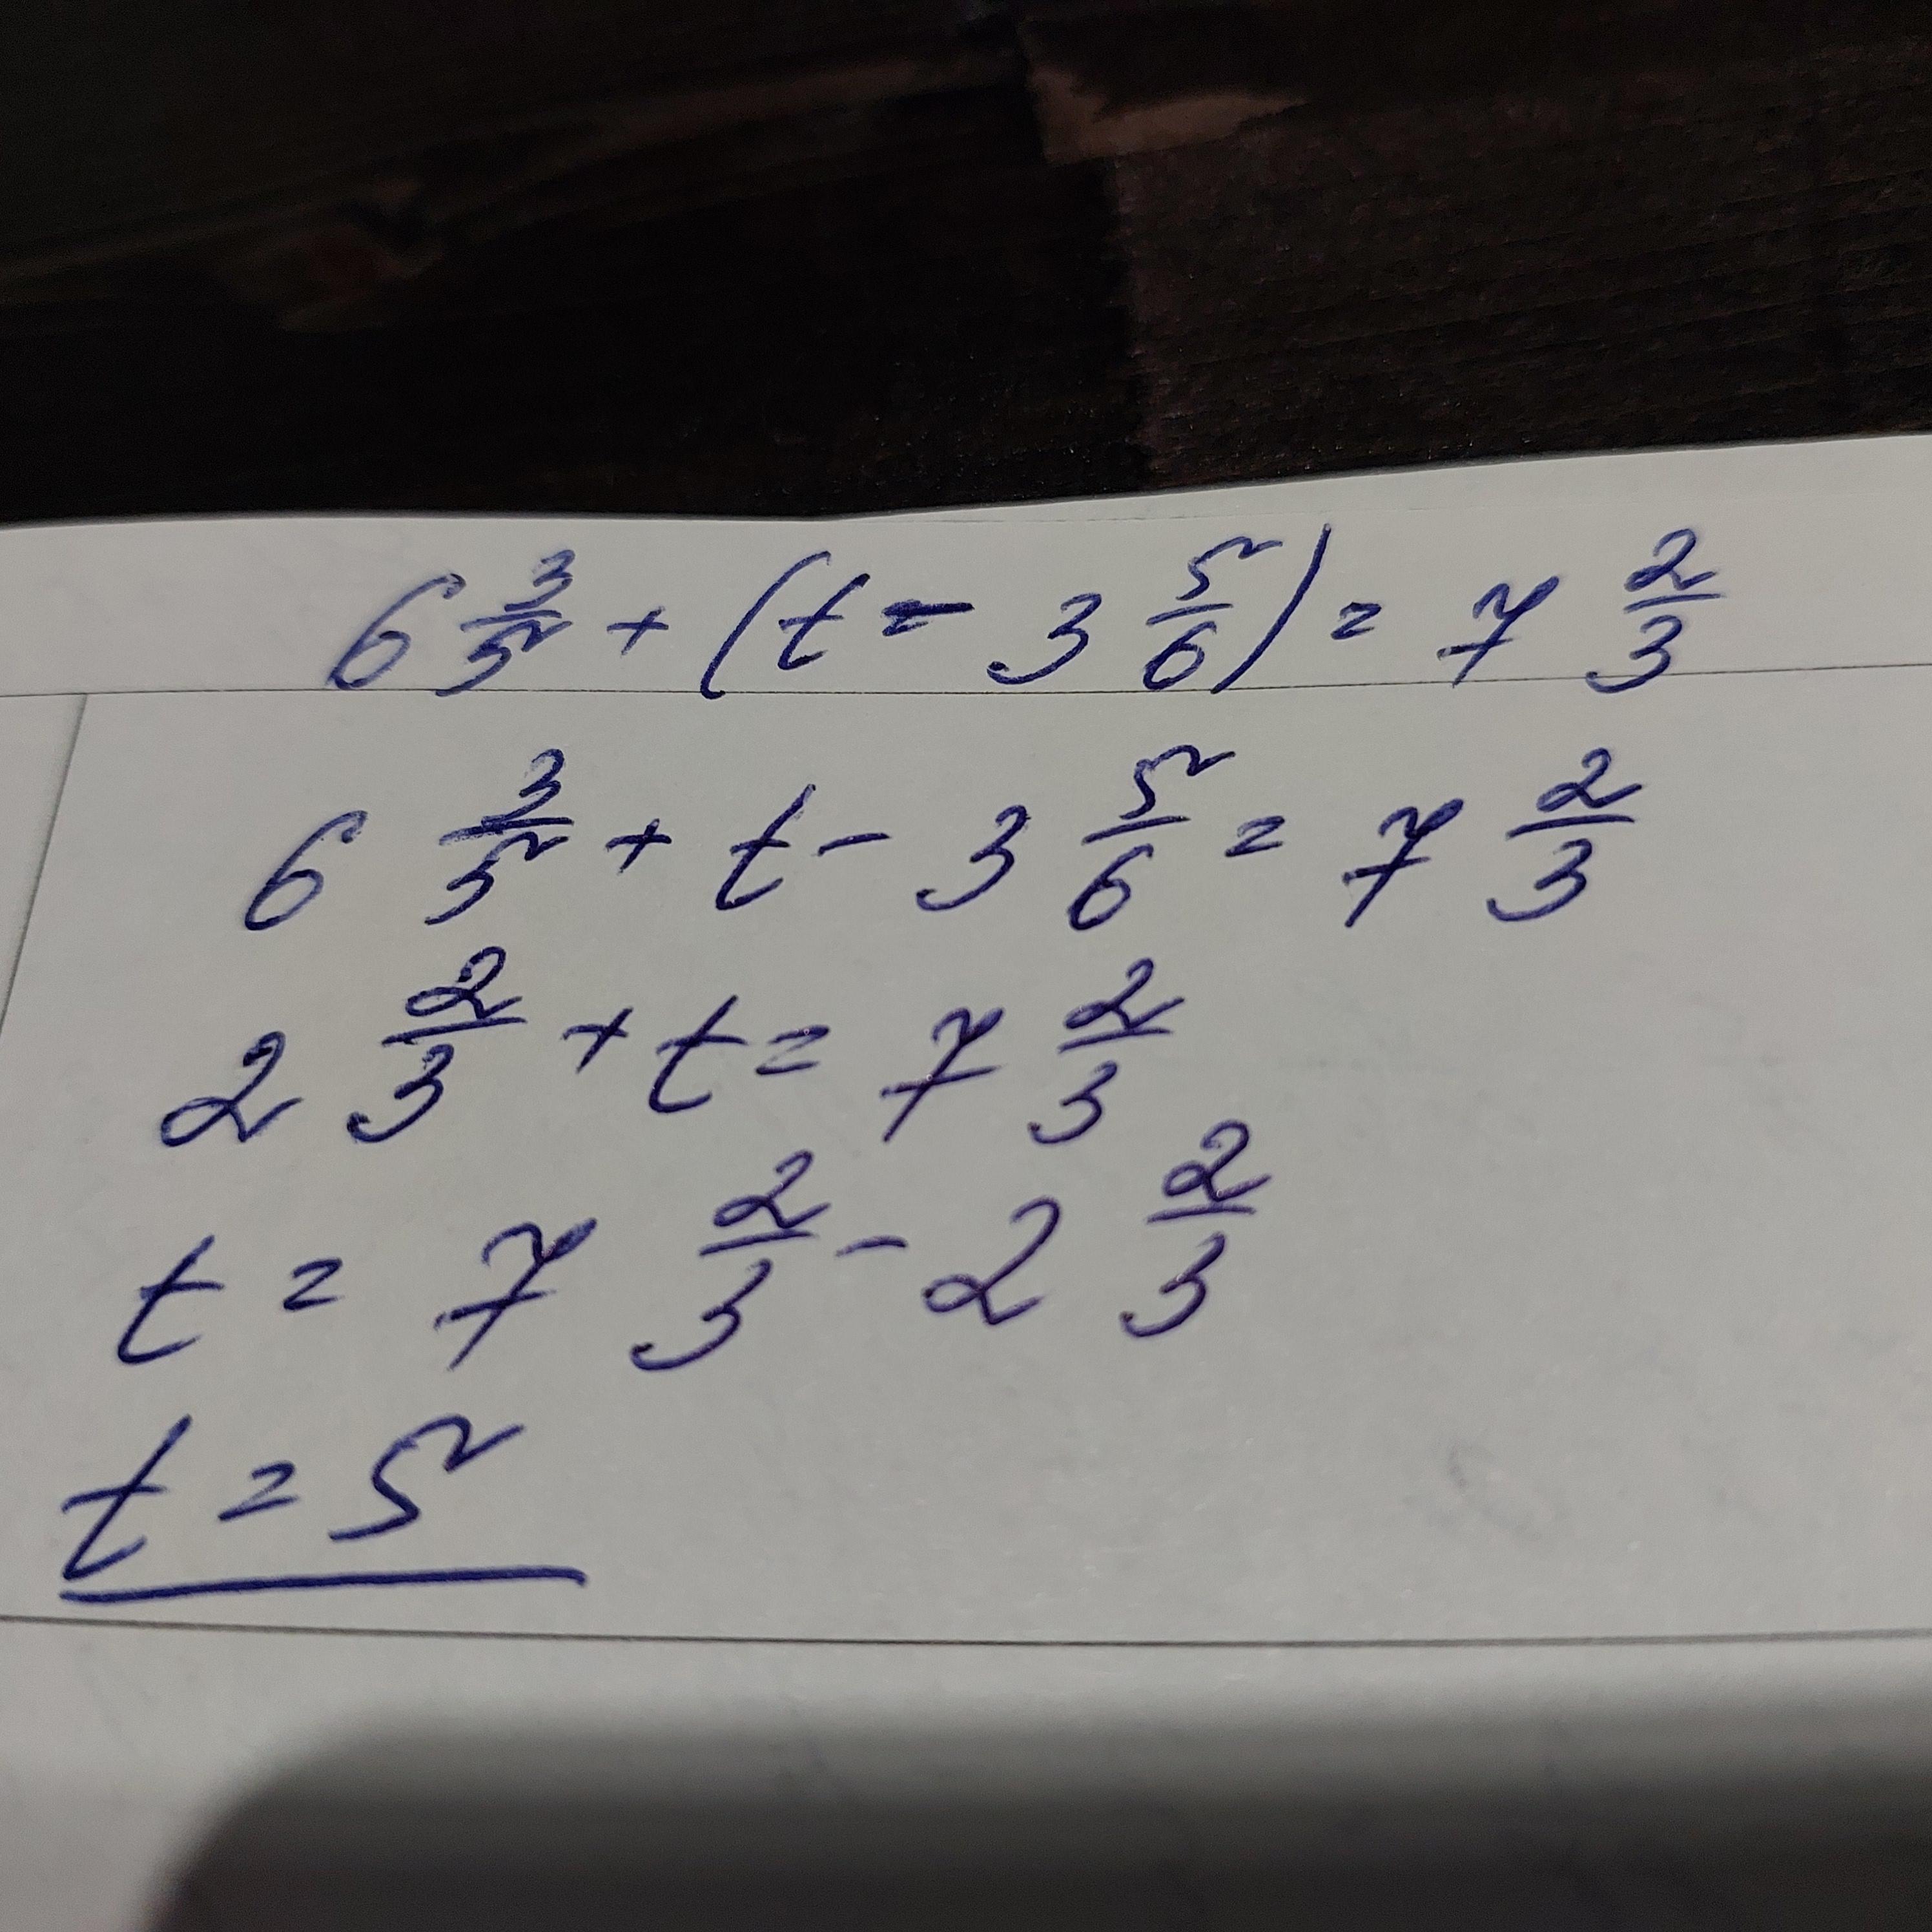 6 3/5 + (t - 3 5/6) = 7 2/3
6 3/5 + t - 3 5/6 = 7 2/3
2 2/3 + t = 7 2/3
t = 7 2/3 - 2 2/3
t = 5